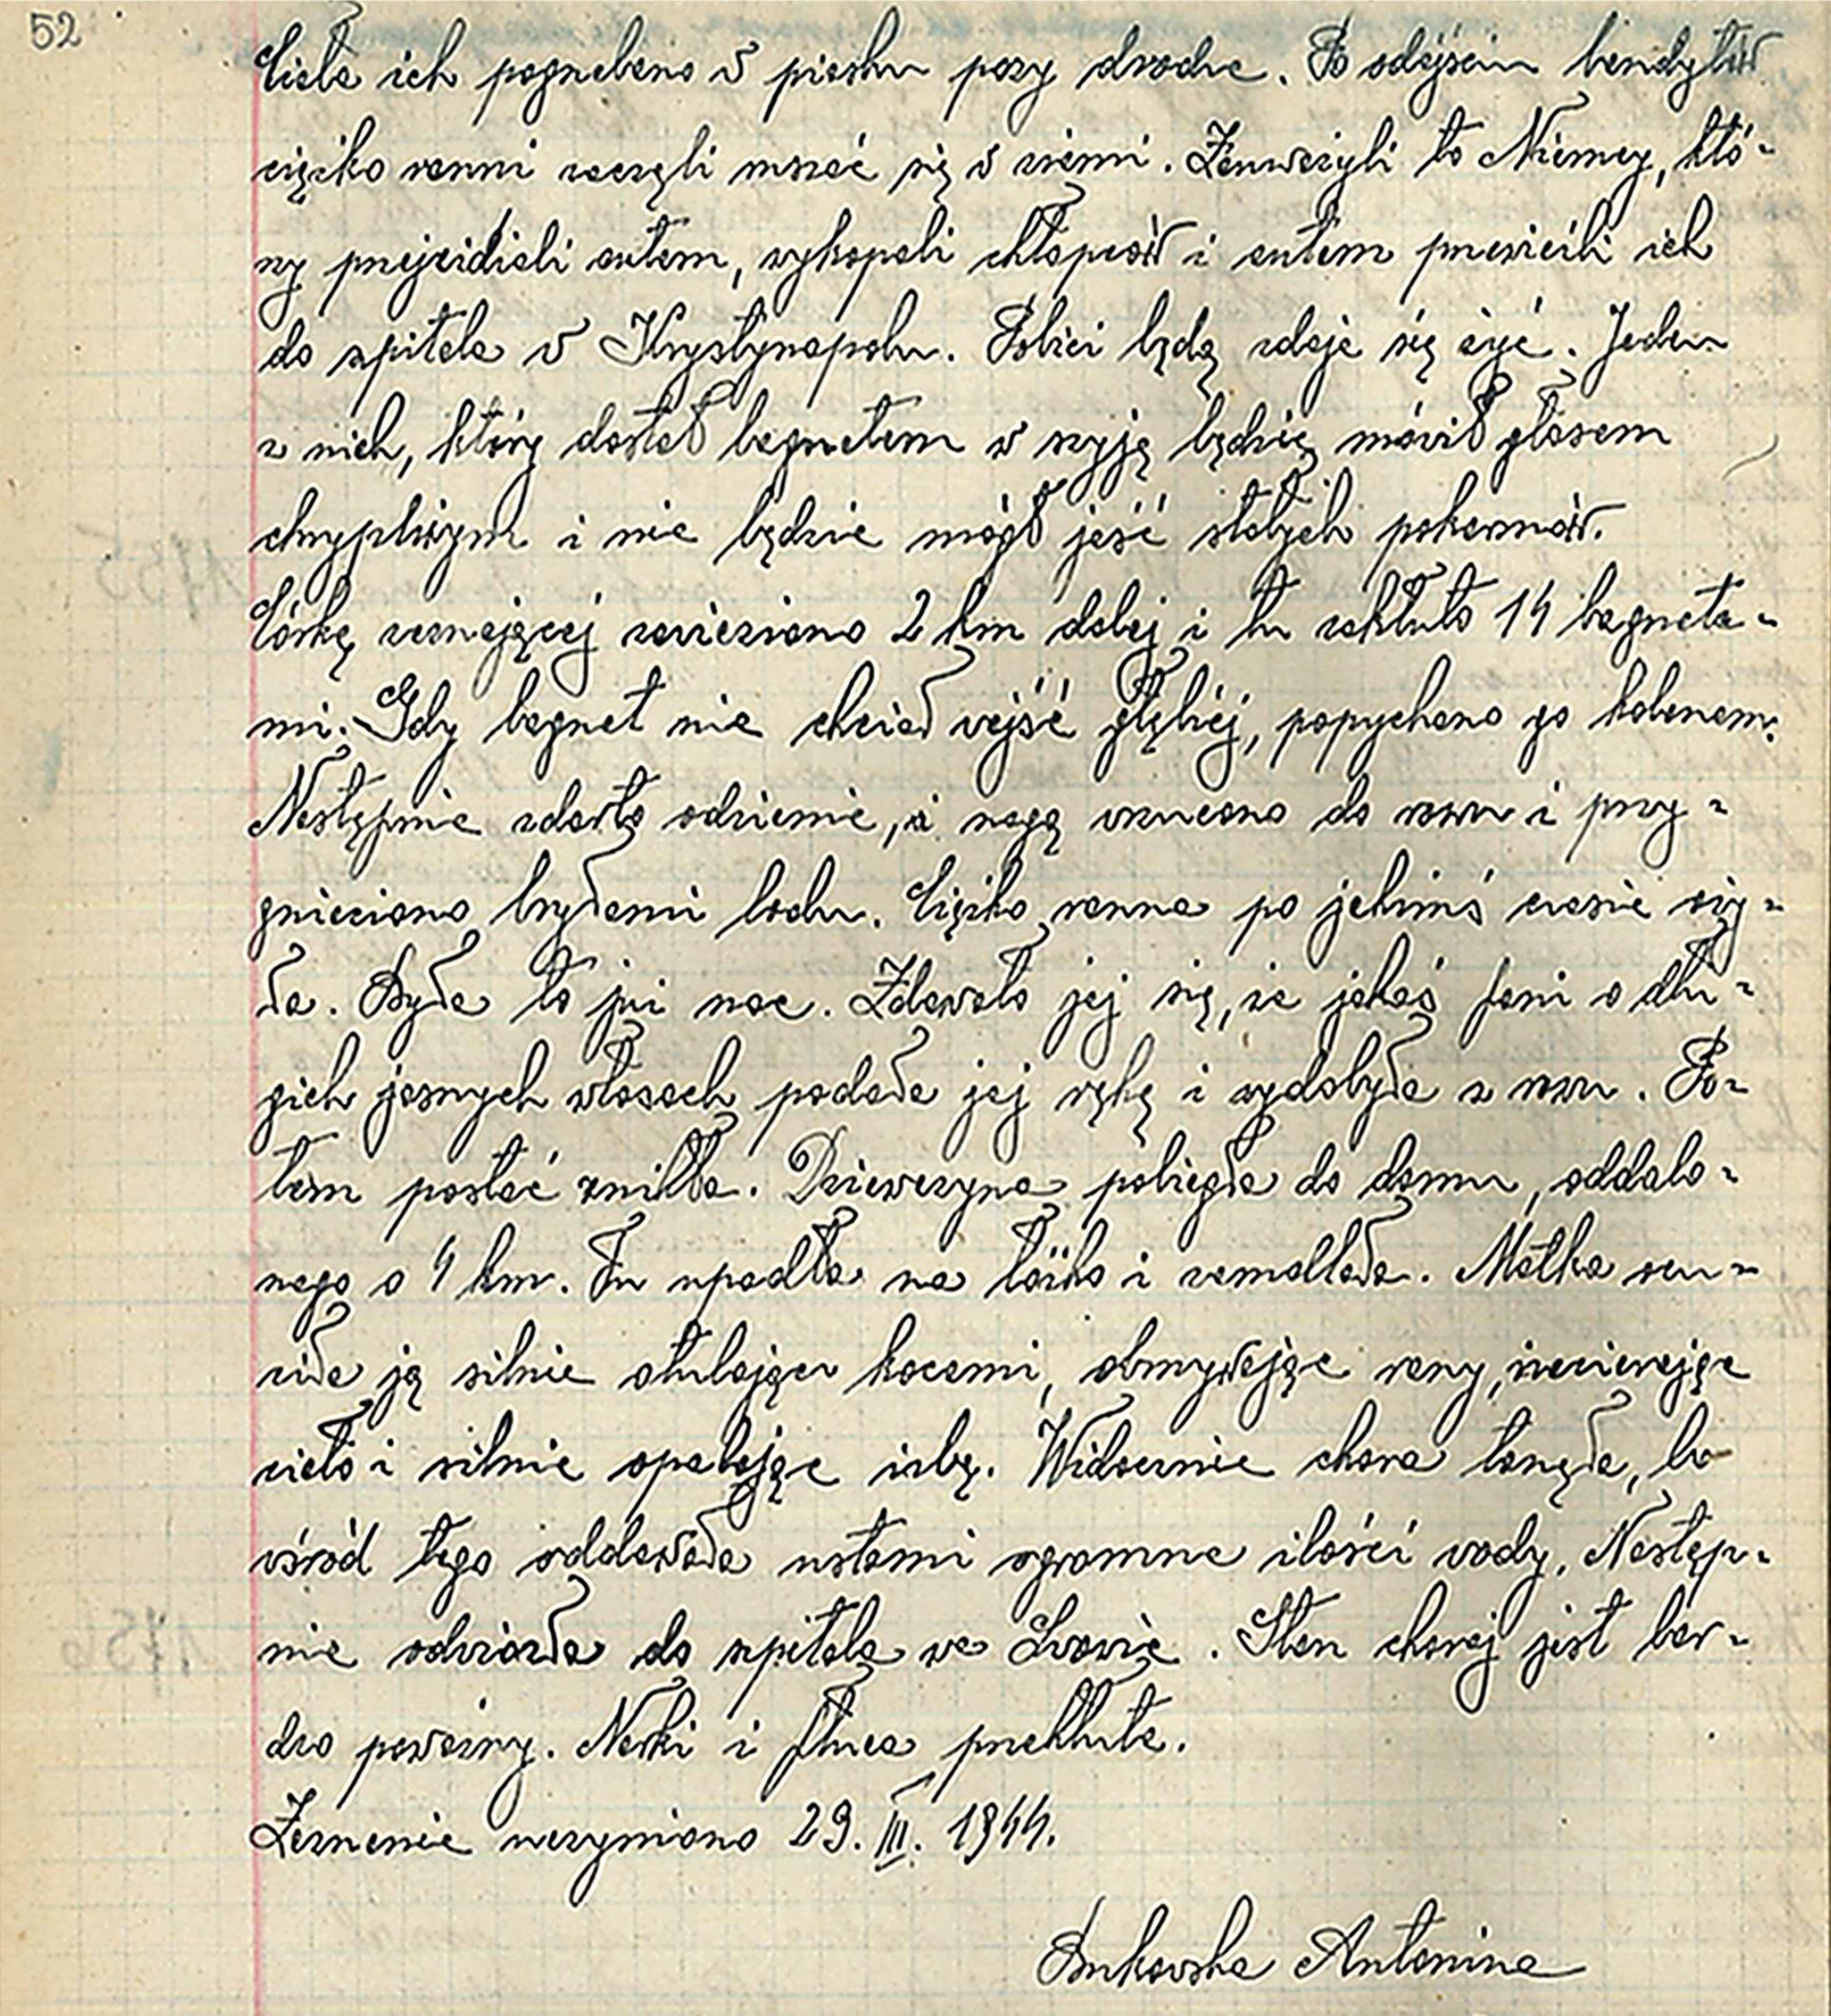 52
Ciała ich pogrzebano w piasku przy drodze. Po odejściu bandytów
ciężko ranni zaczęli ruszać się w ziemi. Zauważyli to Niemcy, któ-
rzy przejeżdżali autem, wykopali chłopców i autem przewieźli ich
do szpitala w Krystynopolu. Podobno będą zdaje się żyć. Jeden
z nich, który dostał bagnetem w szyję będzie mówił głosem
chrypliwym i nie będzie mógł jeść stałych pokarmów.
Córkę zeznającej zawieziono 2 km dalej i tu zakłuto 14 bagneta-
mi. Gdy bagnet nie chciał wejść głębiej, popychano go kolanem.
Następnie zdarto odzienie, a nagą wrzucono do rowu i przy-
gnieciono bryłami lodu. Ciężko ranna po jakimś czasie oży-
ła. Była to już noc. Zdawało jej się, że jakaś Pani o dłu-
gich jasnych włosach podała jej rękę i wydobyła z rowu. Po-
tem postać znikła. Dziewczyna pobiegła do domu, oddalo-
nego o 4 km. Tu upadła na łóżko i zemdlała. Matka ocu-
ciła ją silnie otulając kocami, obmywając rany, nacierając
ciało i silnie opalając izbę. Widocznie chora tonęła, bo
wśród tego oddawała ustami ogromne ilości wody. Następ-
nie odwiozła do szpitala we Lwowie. Stan chorej jest bar-
dzo poważny. Nerki i płuca przekłute.
Zeznanie uczyniono 29. III. 1944.
Bukowska Antonina